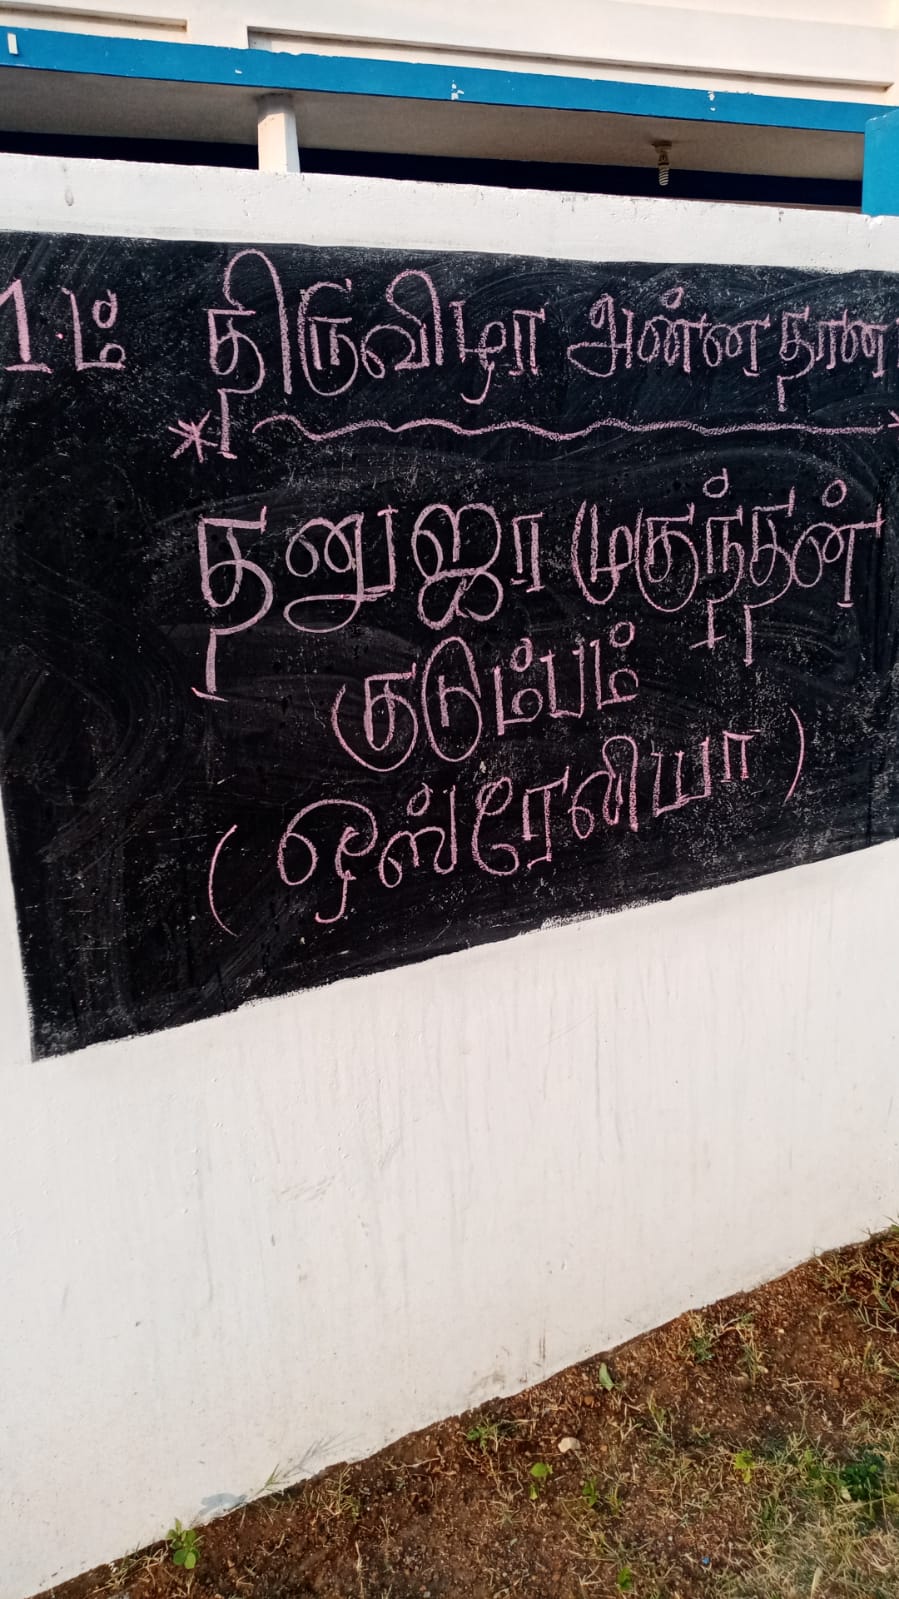 1ம் திருவிழா அன்னதான
தனுஜா முகுந்தன்
குடும்பம்
(ஒஸ்ரேலியா)